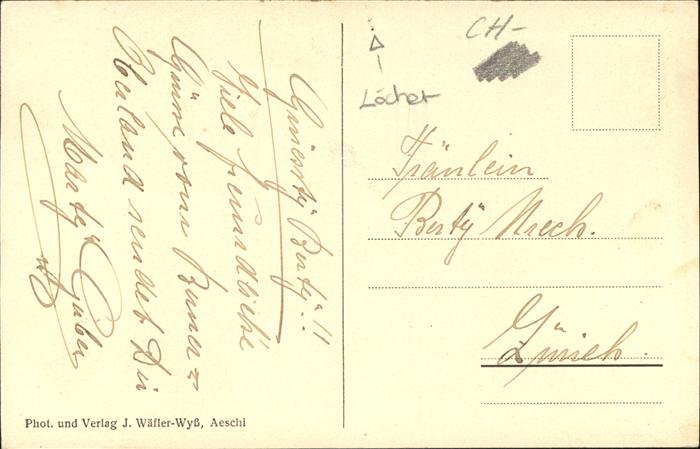 Grüessty Berty!!
Viele freundliche
Grüsse vom Berner=
Oberland sendet Dir
Marty Gruber
CH-
Löcher
Fräulein
Berty Urech.
Zürich.
Phot. und Verlag J. Wäfler-Wyß, Aeschi